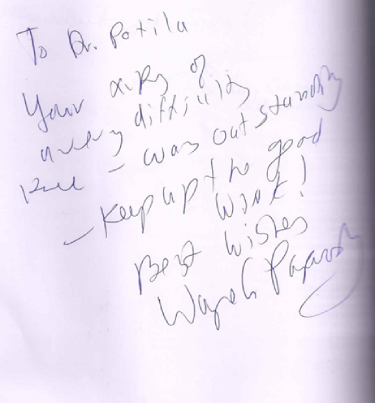 To Dr. Potilu
Your of
a very difficulty
– was outstanding
– Keep up the good
Work!
Best Wishes